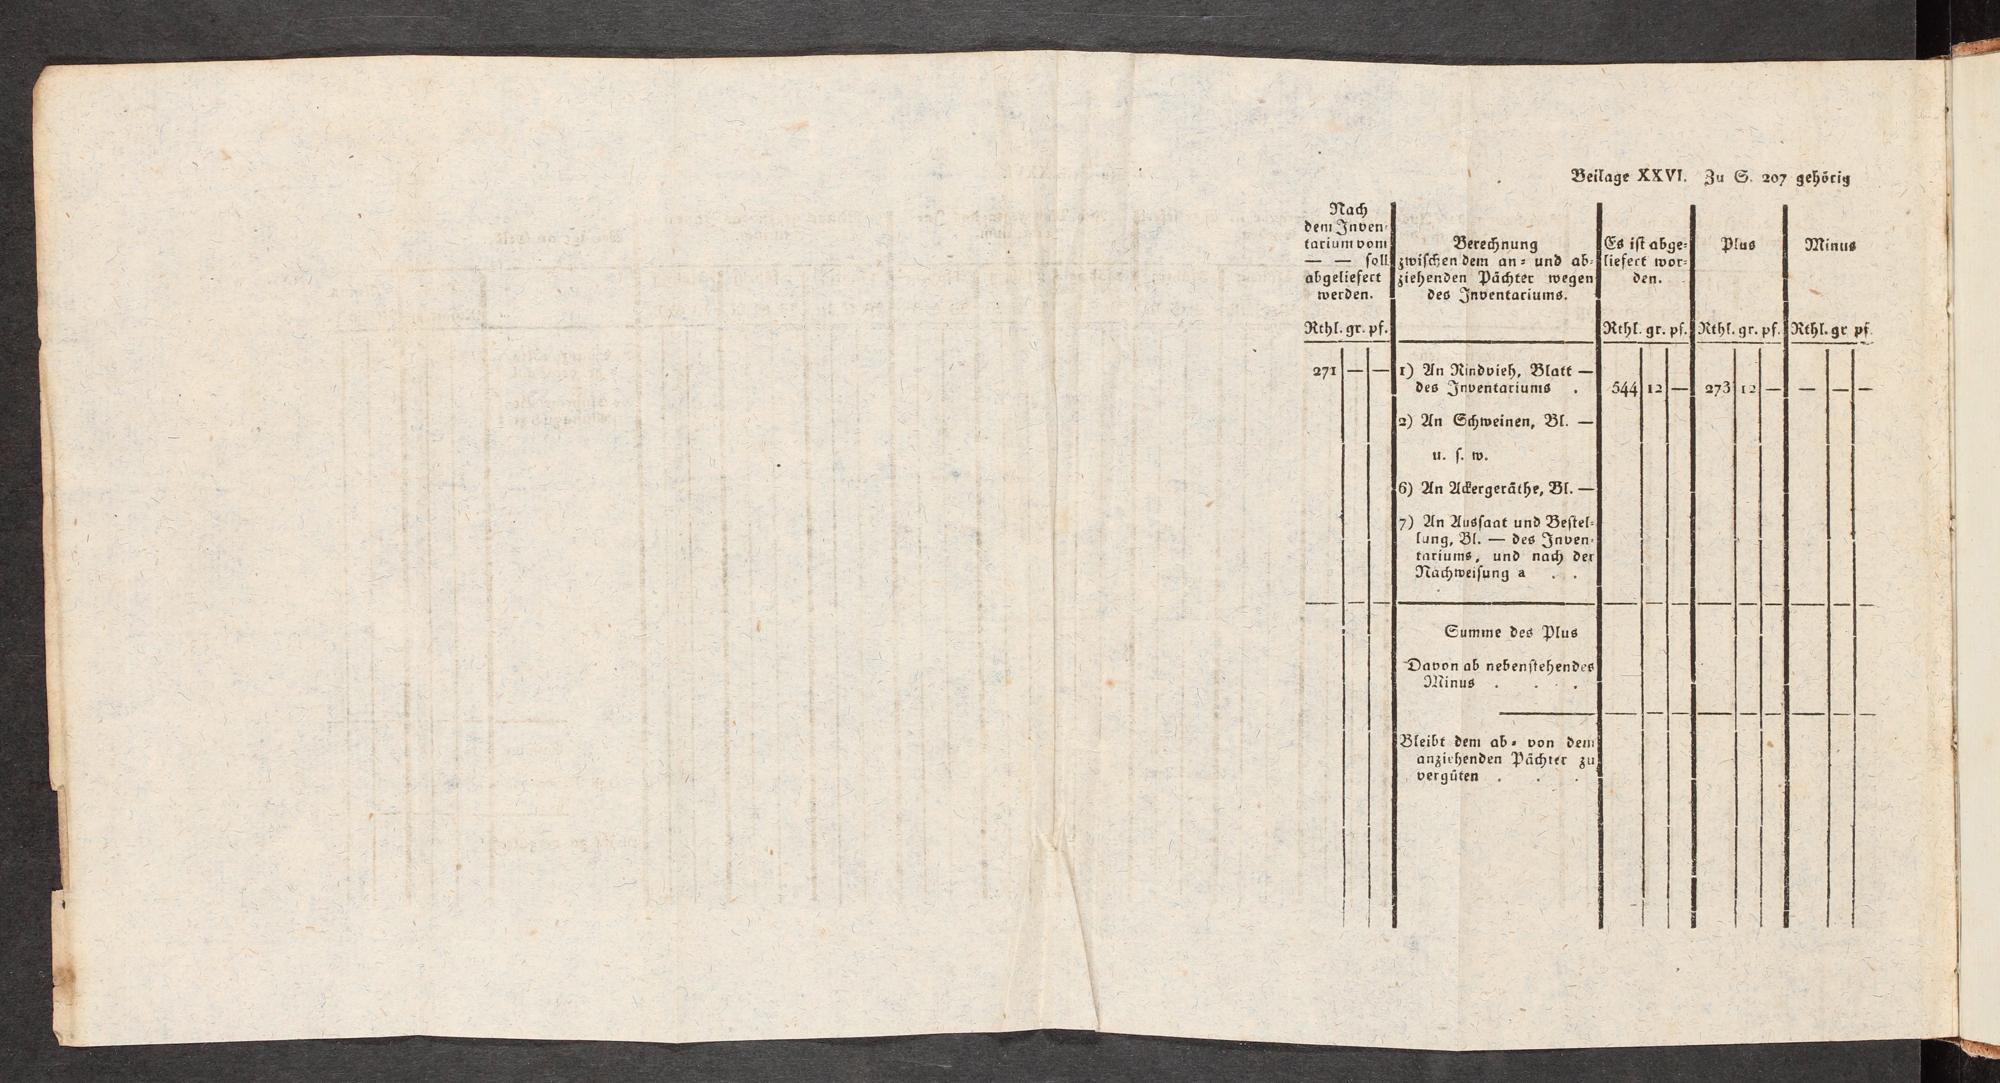 Beilage XXVI. Zu S. 207 gehörig
Nach
dem Inven-
tarium vom
— — soll
abgeliefert
werden.
Berechnung
zwischen dem an- und ab-
ziehenden Pächter wegen
des Inventariums.
Es ist abge-
liefert wor-
den.
Plus
Minus
Rthl. gr. pf.
Rthl. gr. pf.
Rthl. gr. pf.
Rthl. gr pf
271 — —
1) An Rindvieh, Blatt —
des Inventariums .
544 12 —
273 12 —
— — —
2) An Schweinen, Bl. —
u. s. w.
6) An Ackergeräthe, Bl. —
7) An Aussaat und Bestel-
lung, Bl. — des Inven-
tariums, und nach der
Nachweisung a . .
Summe des Plus
Davon ab nebenstehendes
Minus . . .
Bleibt dem ab- von dem
anziehenden Pächter zu
vergüten . . .